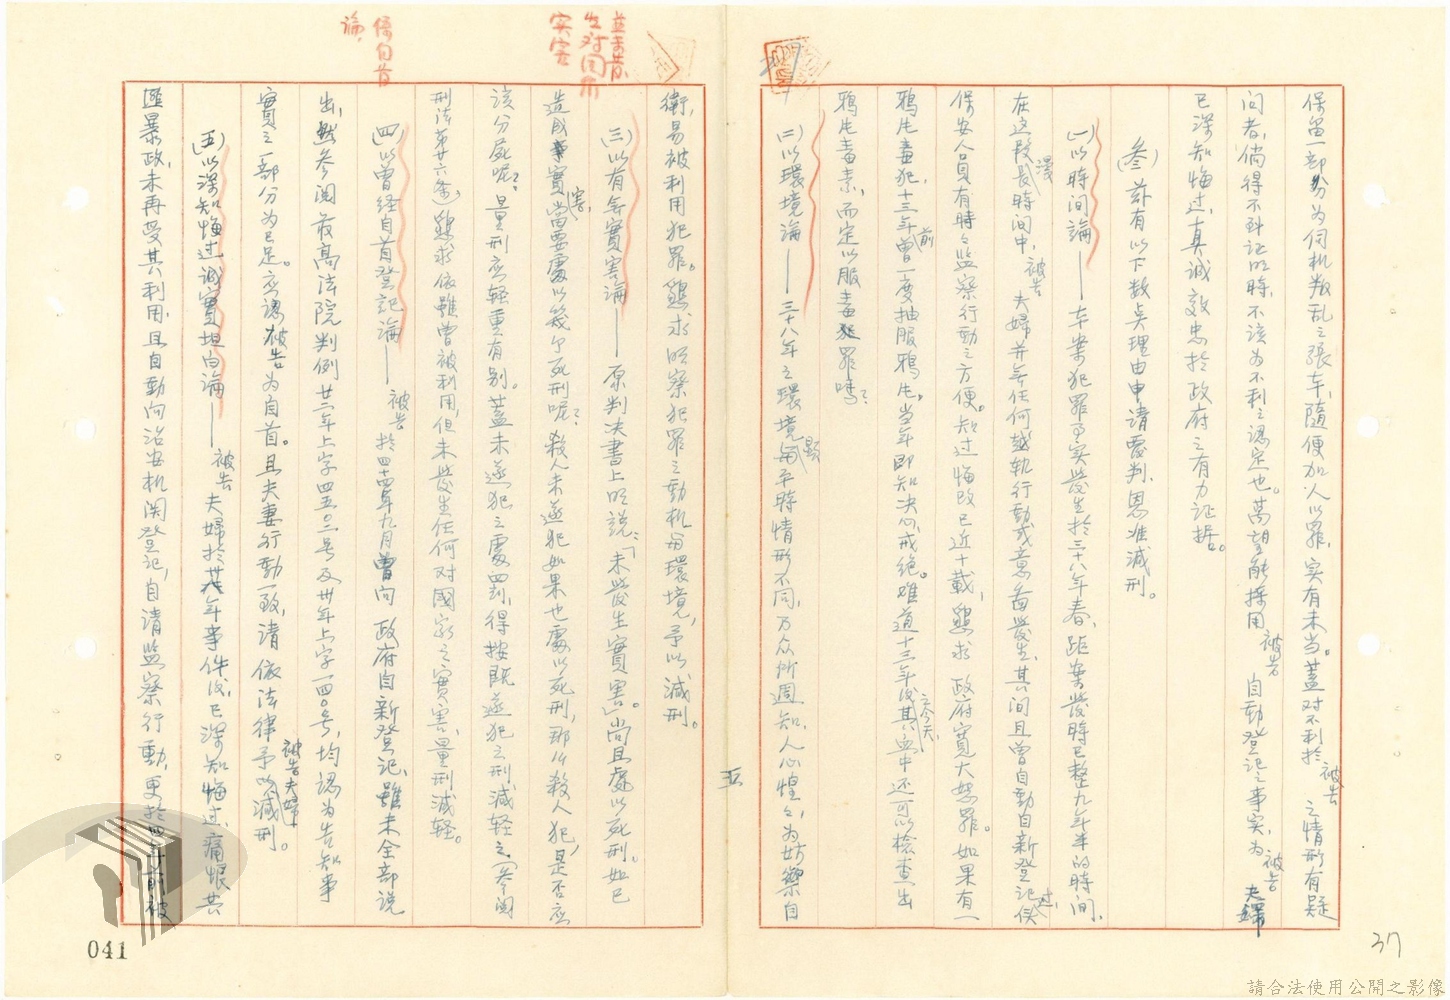 保留一部分为伺机叛乱之張本，隨便加人以罪，实有未当。蓋对不利於被告之情形有疑
问者，倘得不到证明時，不该为不利之認定也。萬望能採用被告自動登记之事实，为被告夫婦
已深知悔过，真诚效忠於政府之有力证据。
(叁)茲有以下数点理由申请覆判，恩准減刑。
(一)以時间論——本案犯罪事实發生於三十八年春，距案發時已整九年半的時间，
在这段漫長時间中，被告夫婦並无任何越軌行動或意圖發生，其间且曾自動自新登记过，俟
保安人員有時時監察行動之方便。知过悔改已近十載，懇求政府寬大恕罪。如果有一
鴉片毒犯，十三年前曾一度抽服鴉片。当年即知决心戒绝。难道十三年後之今天，其血中还可以檢查出
鴉片毒素，而定以服毒犯罪嗎？
(二)以環境論——三十八年之環境顯與平時情形不同，万众所週知，人心惶惶，为妨禦自
五
衛，易被利用犯罪。懇求明察犯罪之動机與環境，予以減刑。
(三)以有无實害論——原判决書上明説：「未發生實害」。尚且處以死刑。如已
造成事實實害，當要處以幾个死刑呢？殺人未遂犯如果也處以死刑，那么殺人犯，是否应
该分屍呢？量刑应轻重有别。蓋未遂犯之處罰，得按既遂犯之刑減轻之（参阅
刑法第廿六条）懇求依雖曾被利用，但未發生任何对國家之實害，量刑減轻。
(四)以曾经自首登記論——被告於四十四年九月曾向政府自新登记，雖未全部说
出，然参阅最高法院判例廿二年上字四五〇二号及卅年上字一四〇号，均認为告知事
實之一部分为已足。应認被告为自首。且夫妻行動一致，请依法律予被告夫婦以減刑。
(五)以深知悔过诚實坦白論——被告夫婦於卅八年事件後，已深知悔过，痛恨共
匪暴政，未再受其利用，且自動向治安机関登记，自请監察行動，更於四年前被
並未發
生对国家
实害
係自首
論
37
041
請合法使用公開之影像